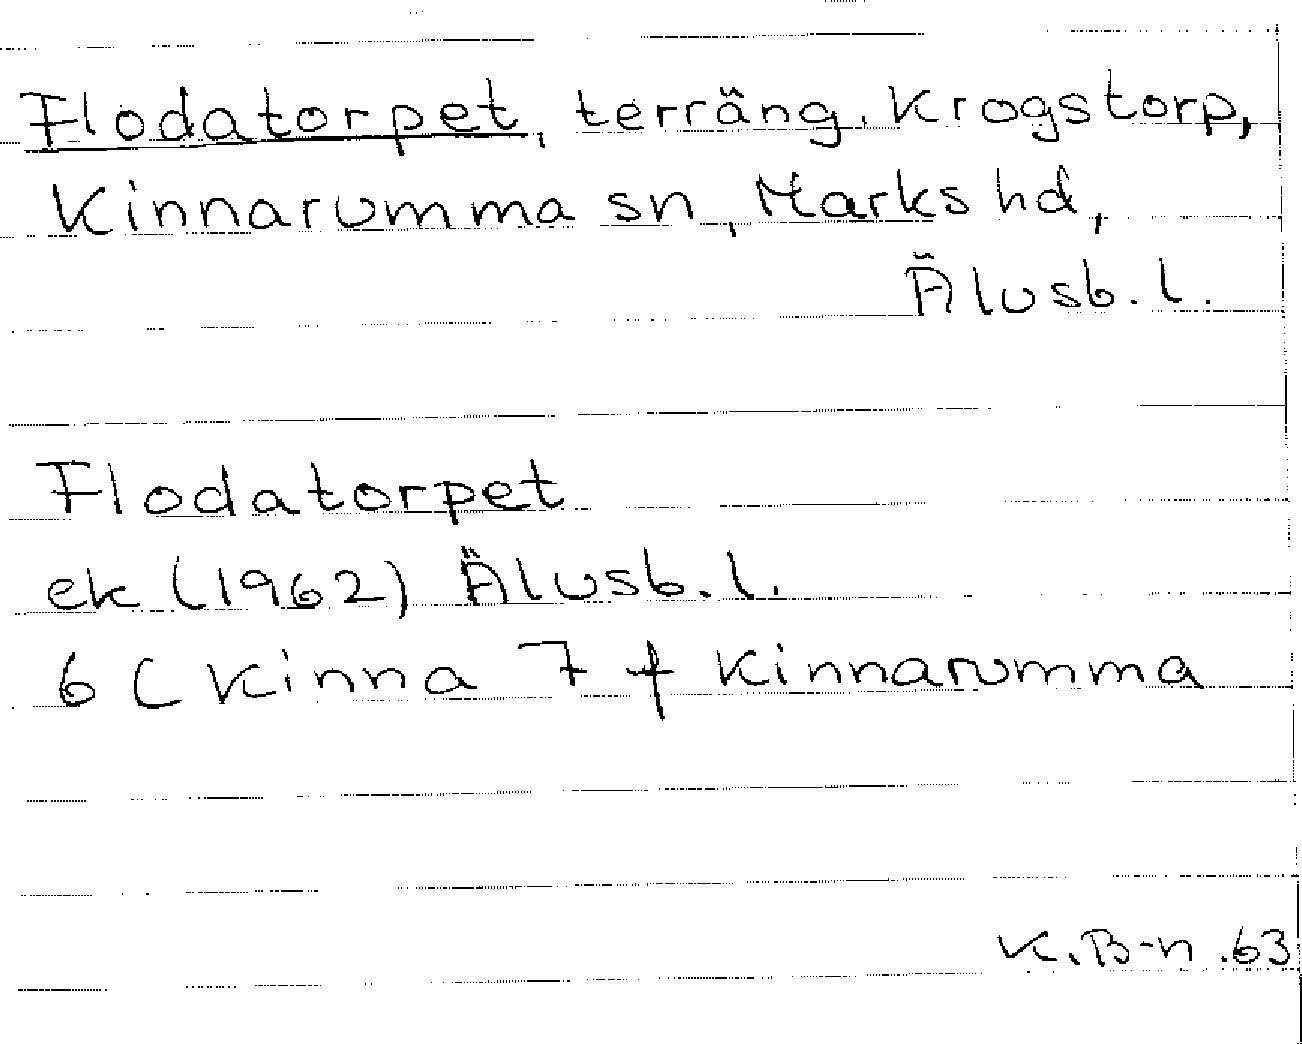 Flodatorpet, terräng. Krogstorp,
Kinnarumma sn, Marks hd,
Älvsb. l.
Flodatorpet
ek (1962) Älvsb. l.
6 C Kinna 7 f Kinnarumma
K.B-n .63